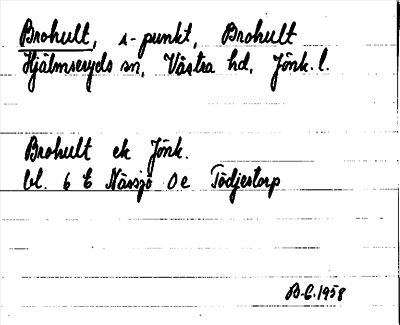 Brohult, s-punkt, Brohult
Hjälmseryds sn, Västra hd, Jönk. l.
Brohult ek Jönk.
bl. 6 E Nässjö 0e Tödjestorp
B.E. 1958